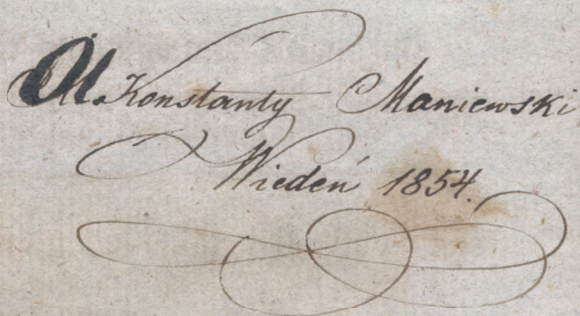 Konstanty Maniewski
Wiedeń 1854.